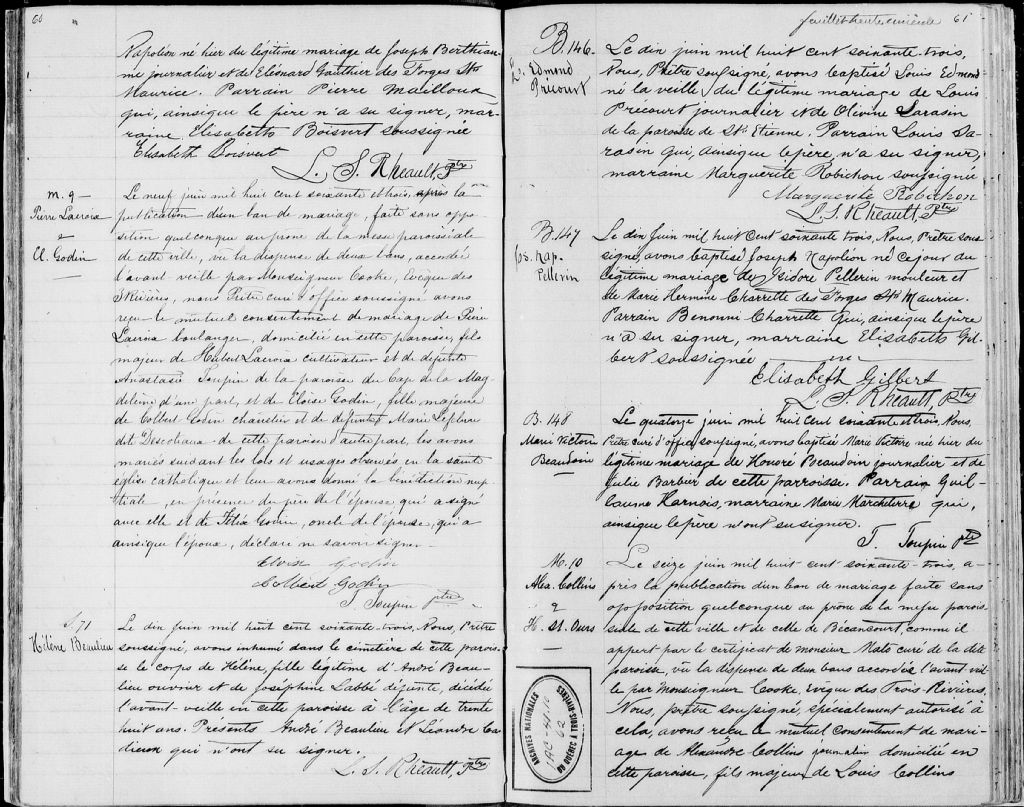 60
Napoléon né hier du légitime mariage de Joseph Berthiau-
me journalier et de Eléonard Gauthier des Forges St
Maurice. Parrain Pierre Mailloux
qui, ainsique le père n'a su signer, mar-
raine Elisabeth Boisvert soussignée
Elisabeth Boisvert
L. S. Rheault, Ptre
M. 9
Pierre Lacroix
&
El. Godin
Le neuf juin mil huit cent soixante et trois, après la
publication d'un ban de mariage, faite sans oppo-
sition quelconque au prône de la messe paroissiale
de cette ville, vu la dispense de deux bans, accordée
l'avant veille par Monseigneur Cooke, Evêque des
3 Rivières, nous Prêtre curé d'office soussigné avons
reçu le mutuel consentement de mariage de Pierre
Lacroix boulanger, domicilié en cette paroisse, fils
majeur de Hubert Lacroix cultivateur et de défunte
Anastasie Toupin de la paroisse du Cap de la Mag-
deleine d'une part, et de Eloise Godin, fille majeure
de Colbert Godin charretier et de défunte Marie Lefebvre
dit Descoteaux de cette paroisse d'autre part, les avons
mariés suivant les lois et usages observés en la sainte
église catholique et leur avons donné la bénédiction nup-
tiale, en présence du père de l'épouse qui a signé
avec elle et de Félix Godin, oncle de l'épouse, qui a
ainsique l'époux, déclaré ne savoir signer.
Eloise Godin
Colbert Godin
T. Toupin ptre
S. 71
Hélène Beaulieu
Le dix juin mil huit cent soixante-trois, Nous, Prêtre
soussigné, avons inhumé dans le cimetière de cette parois-
se le corps de Hélène, fille légitime d'André Beau-
lieu ouvrier et de Joséphine Labbé défunte, décédée
l'avant-veille en cette paroisse à l'âge de trente
huit ans. Présents André Beaulieu et Léandre Ca-
dieux qui n'ont su signer.
L. S. Rheault, Ptre
feuillet trente unième 61
B. 146
Ls. Edmond
Précourt
Le dix juin mil huit cent soixante-trois,
Nous, Prêtre soussigné, avons baptisé Louis Edmond
né la veille du légitime mariage de Louis
Précourt journalier et de Olivine Sarasin
de la paroisse de St. Etienne. Parrain Louis Sa-
rasin qui, ainsique le père, n'a su signer,
marraine Marguerite Robichon soussignée
Marguerite Robichon
L. S. Rheault, Ptre
B. 147
Jos. Nap.
Pellerin
Le dix Juin mil huit cent soixante trois, Nous, Prêtre sous-
signé, avons baptisé Joseph Napoléon né ce jour du
légitime mariage de Isidore Pellerin mouleur et
de Marie Hermine Charrette des Forges St Maurice.
Parrain Benonni Charrette qui, ainsique le père
n'a su signer, marraine Elisabeth Gil-
bert soussignée
Elisabeth Gilbert
L. S. Rheault, Ptre
B. 148
Marie Victoire
Beaudoin
Le quatorze juin mil huit cent soixante et trois, Nous,
Prêtre curé d'office soussigné, avons baptisé Marie Victoire né hier du
légitime mariage de Honoré Beaudoin journalier et de
Julie Barbier de cette parroisse. Parrain Guil-
laume Harnois, marraine Marie Marcheterre qui,
ainsique le père n'ont su signer.
T. Toupin ptre
M. 10
Alex. Collins
&
H. St. Ours
Le seize juin mil huit cent soixante-trois, a-
près la publication d'un ban de mariage faite sans
opposition quelconque au prône de la messe parois-
siale de cette ville et de celle de Bécancourt, comme il
appert par le certificat de monsieur Malo curé de la dite
paroisse, vu la dispense de deux bans accordée l'avant veil-
le par Monseigneur Cooke, Evêque des Trois-Rivières,
Nous, prêtre soussigné, spécialement autorisé à
cela, avons reçu le mutuel consentement de mari-
age de Alexandre Collins journalier domicilié en
cette paroisse, fils majeur de Louis Collins
ARCHIVES NATIONALES
DU QUÉBEC À TROIS-RIVIÈRES